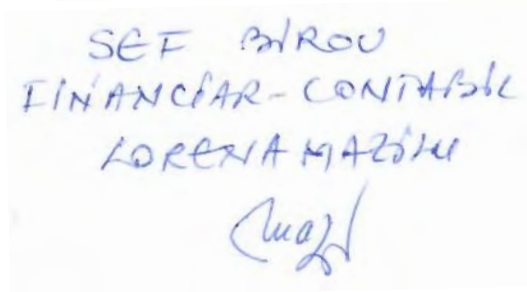 SEF BIROU
FINANCIAR-CONTABIL
LORENA MAZILU